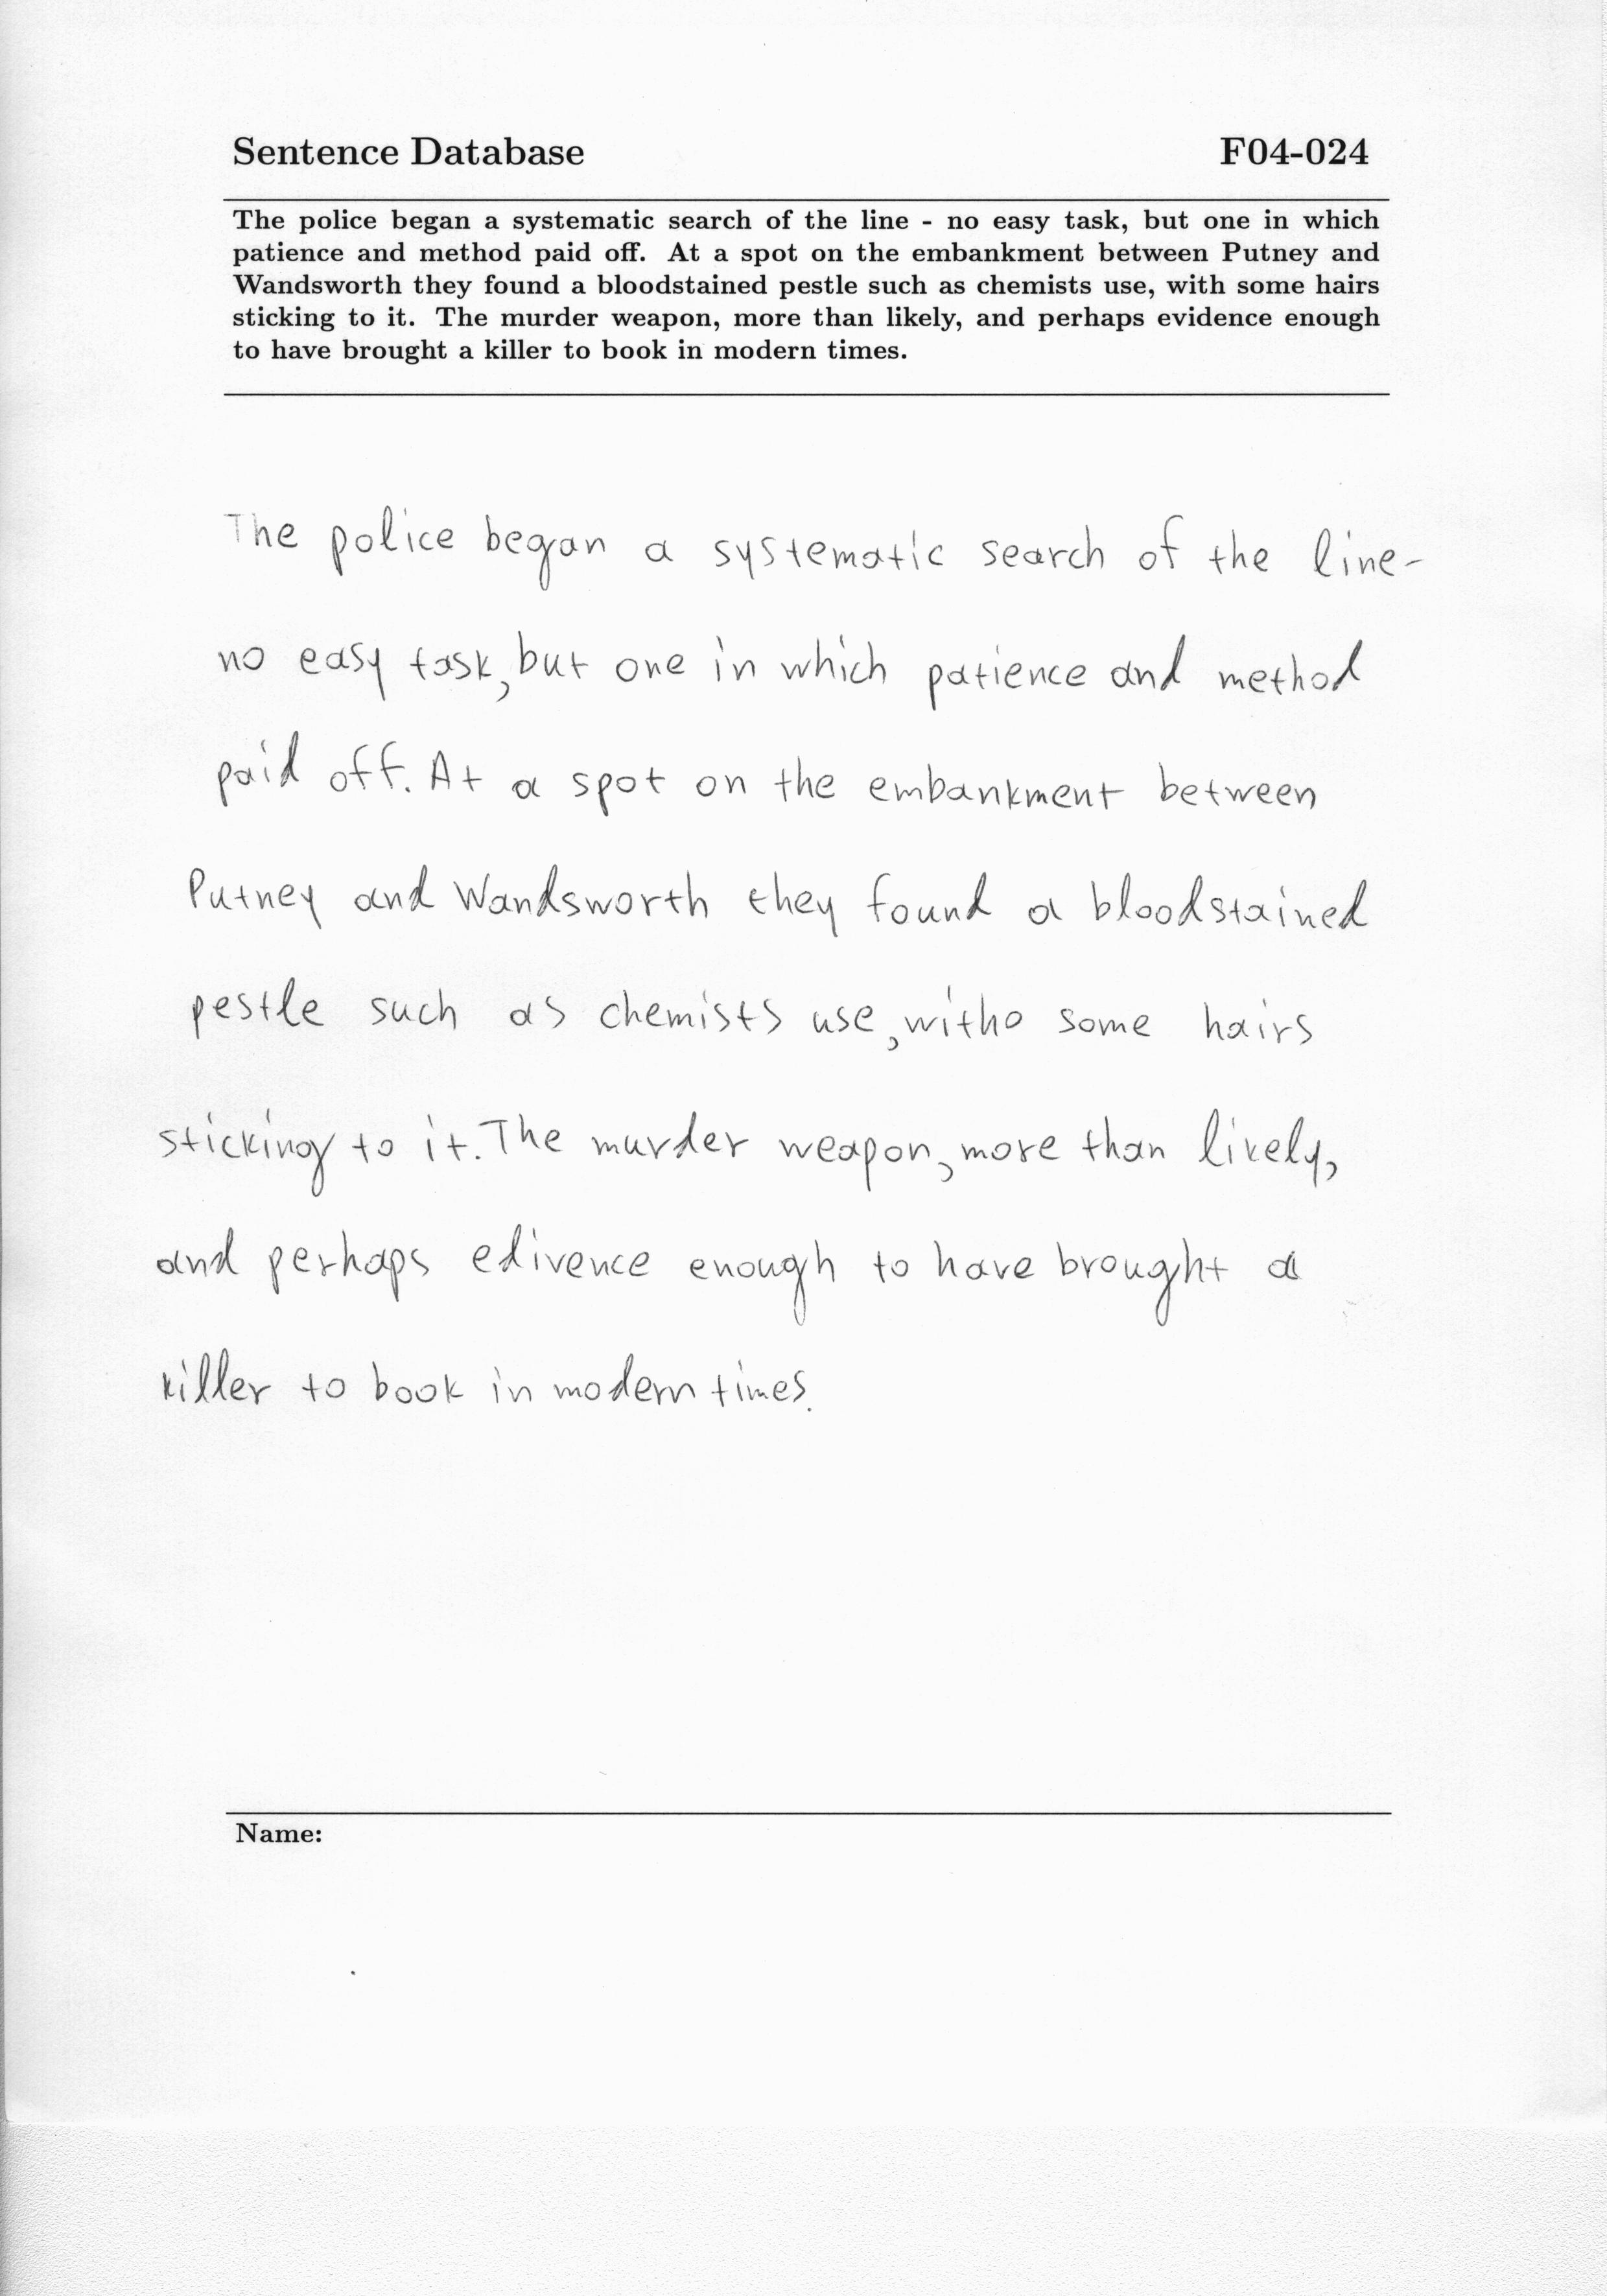 Sentence Database F04-024
The police began a systematic search of the line - no easy task, but one in which
patience and method paid off. At a spot on the embankment between Putney and
Wandsworth they found a bloodstained pestle such as chemists use, with some hairs
sticking to it. The murder weapon, more than likely, and perhaps evidence enough
to have brought a killer to book in modern times.
The police began a systematic search of the line-
no easy task, but one in which patience and method
paid off. At a spot on the embankment between
Putney and Wandsworth they found a bloodstained
pestle such as chemists use, witho some hairs
sticking to it. The murder weapon, more than likely,
and perhaps edivence enough to have brought a
killer to book in modern times.
Name: